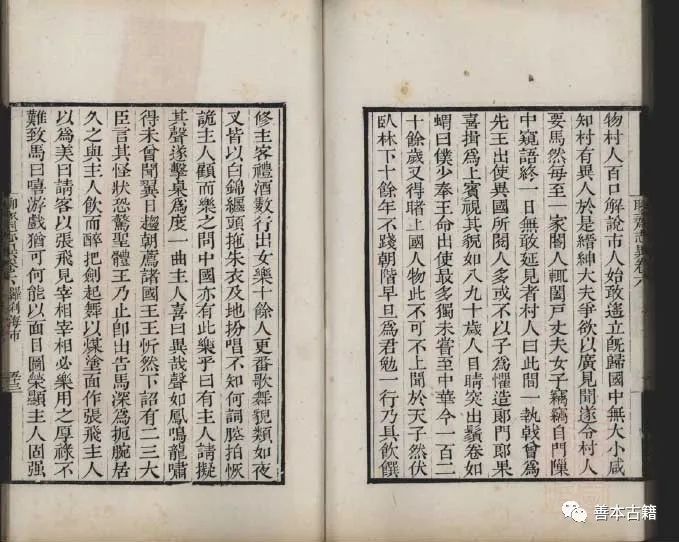 聊齋志異卷六
物村人百口解說市人始敢遙立旣歸國中無大小咸
知村有異人於是縉紳大夫爭欲以廣見聞遂令村人
要馬然每至一家閽人輒闔戶丈夫女子竊竊自門隙
中窺語終一日無敢延見者村人曰此間一執戟曾爲
先王出使異國所閱人多或不以子爲懼造郞門郞果
喜揖爲上賓視其貌如八九十歲人目睛突出鬚卷如
蝟曰僕少奉王命出使最多獨未嘗至中華今一百二
十餘歲又得睹上國人物此不可不上聞於天子然伏
臥林下十餘年不踐朝階早旦爲君勉一行乃具飮饌
修主客禮酒數行出女樂十餘人更番歌舞貌類如夜
叉皆以白錦纏頭拖朱衣及地扮唱不知何詞腔拍恢
詭主人顧而樂之問中國亦有此樂乎曰有主人請擬
其聲遂擊桌爲度一曲主人喜曰異哉聲如鳳鳴龍嘯
得未曾聞翼日趨朝薦諸國王王忻然下詔有二三大
臣言其怪狀恐驚聖體王乃止卽出告馬深爲扼腕居
久之與主人飮而醉把劍起舞以煤塗面作張飛主人
以爲美曰請客以張飛見宰相宰相必樂用之厚祿不
難致馬曰嘻游戲猶可何能以面目圖榮顯主人固强
聊齋志異卷六 羅刹海市
善本古籍